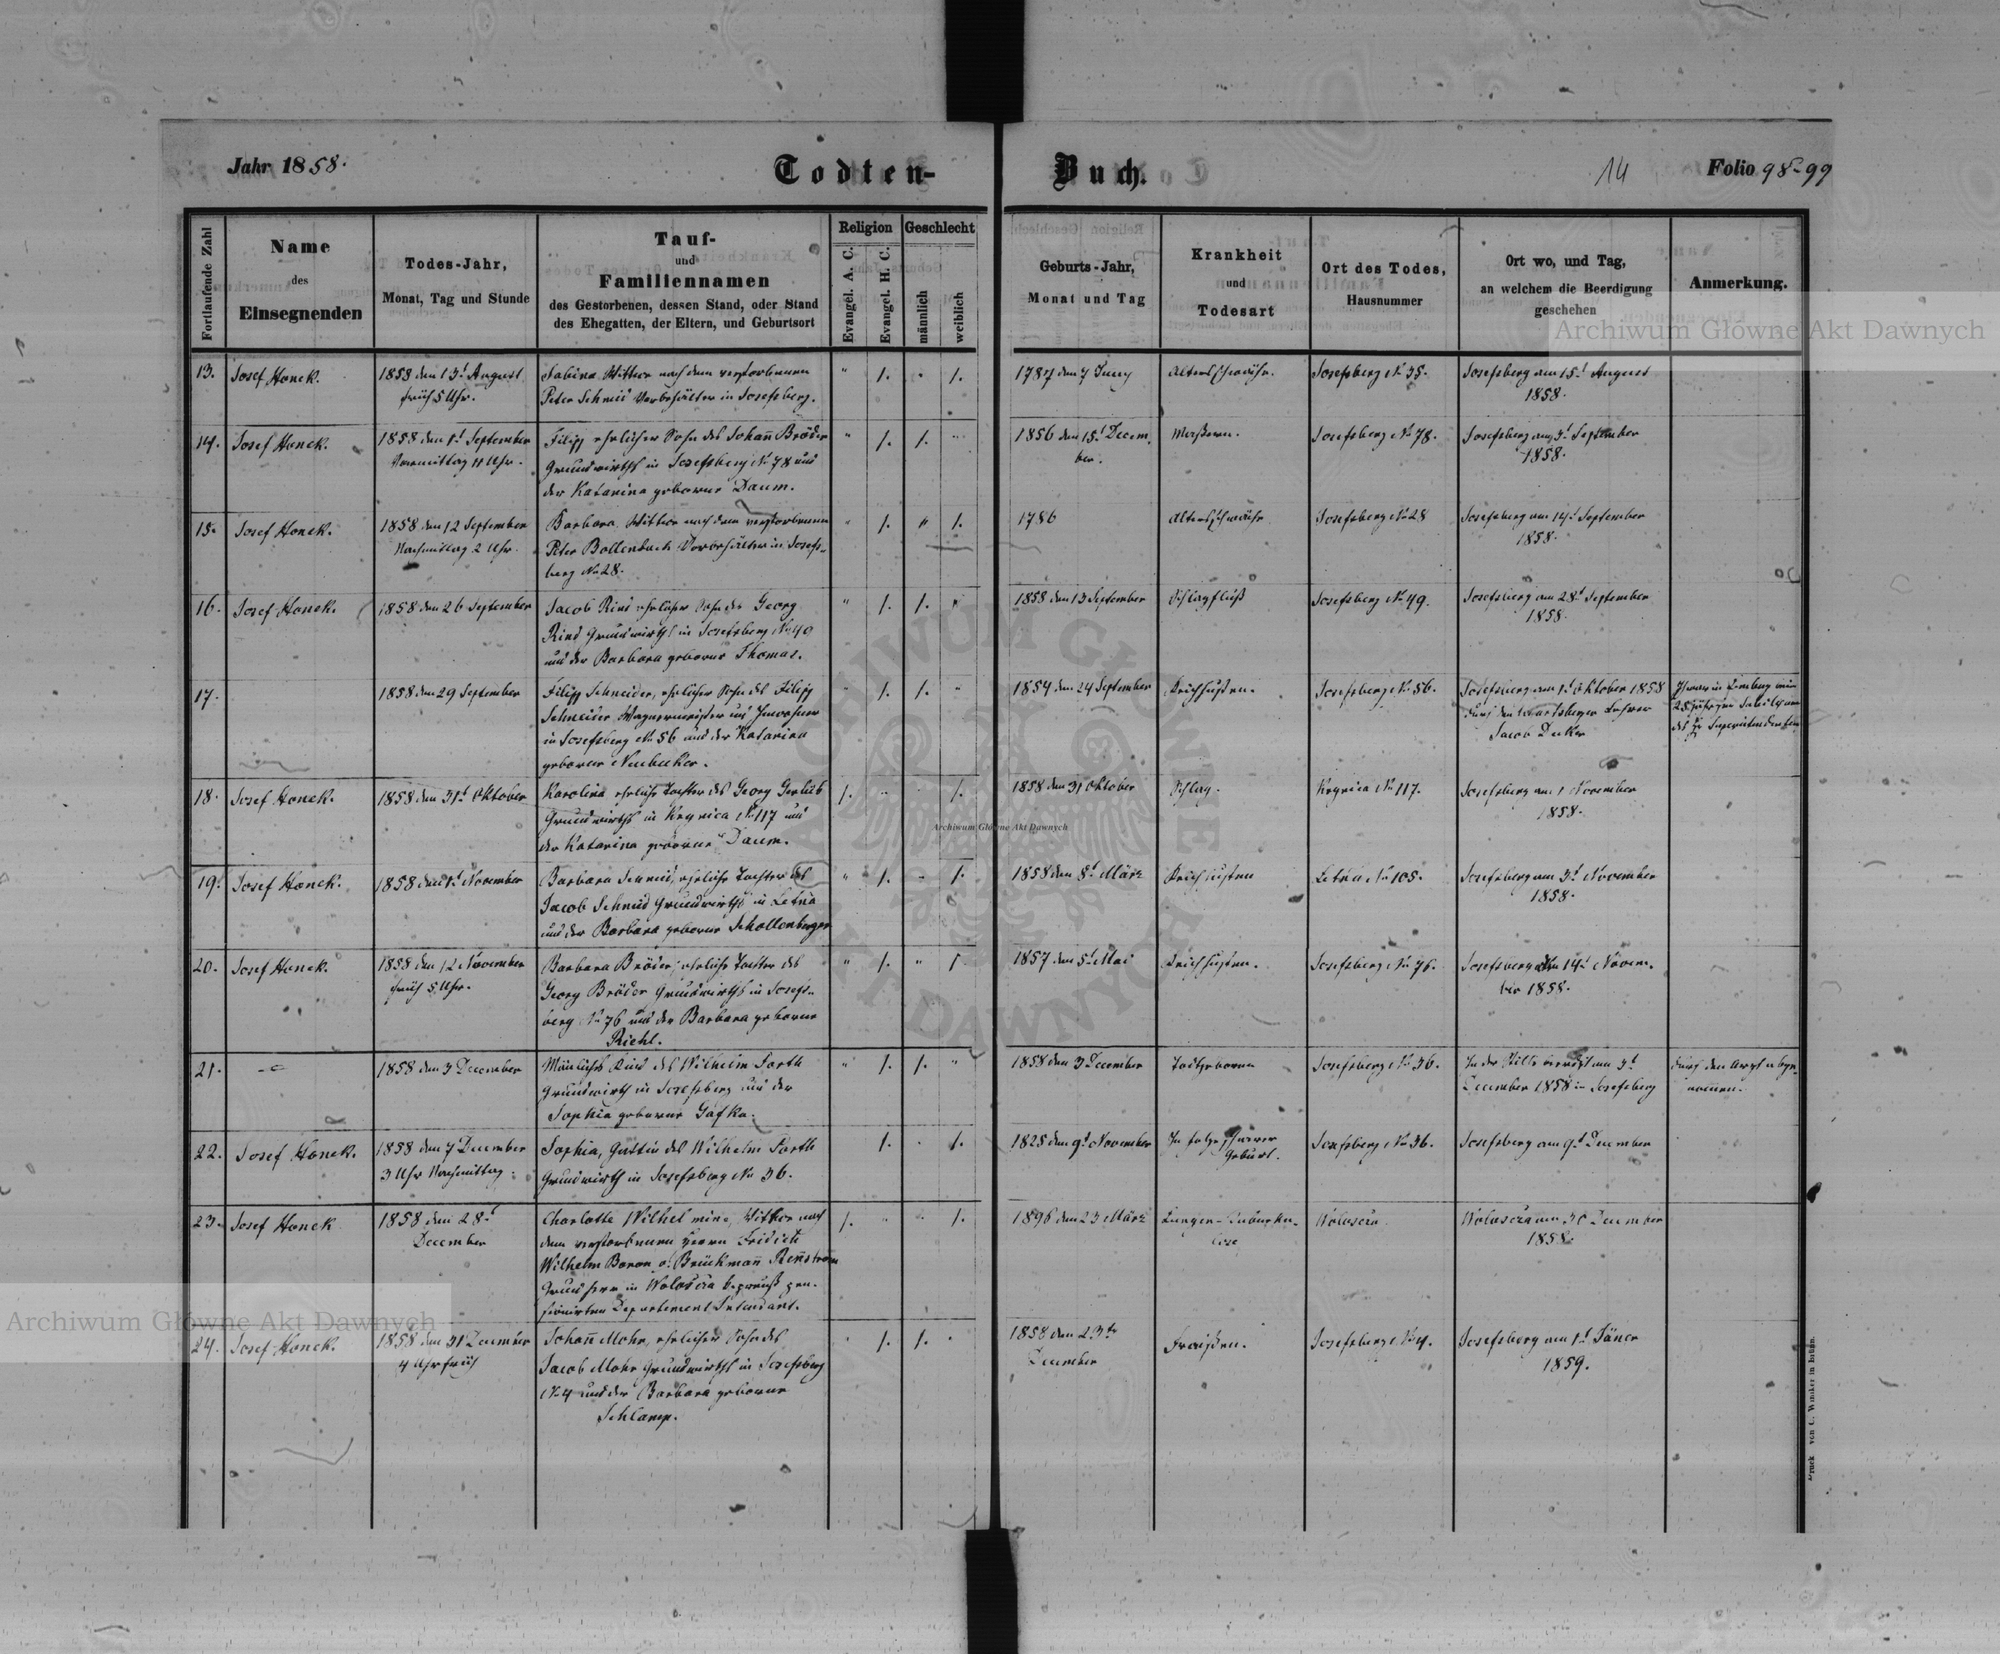 Jahr 1858.
Todten-Buch.
14
Folio 98-99
Fortlaufende Zahl
Name
des
Einsegnenden
Todes-Jahr,
Monat, Tag und Stunde
Tauf-
und
Familiennamen
des Gestorbenen, dessen Stand, oder Stand
des Ehegatten, der Eltern, und Geburtsort
Religion
Evangel. A. C.
Evangel. H. C.
Geschlecht
männlich
weiblich
Geburts-Jahr,
Monat und Tag
Krankheit
und
Todesart
Ort des Todes,
Hausnummer
Ort wo, und Tag,
an welchem die Beerdigung
geschehen
Anmerkung.
13.
Josef Honek.
1858 den 13t August
früh 5 Uhr.
Sabina Witwe nach dem verstorbenen
Peter Schmid Vorbehälter in Josefsberg.
" 1. " 1.
1787 den 7 Juny
Altersschwäche.
Josefsberg No 35.
Josefsberg am 15t August
1858.
14.
Josef Honek.
1858 den 1t September
Vormittag 11 Uhr.
Filipp ehelicher Sohn des Johann Bröder
Grundwirth in Josefsberg No 78 und
der Katarina geborne Daum.
" 1. 1. "
1856 den 15t Decem-
ber.
Masern.
Josefsberg No 78.
Josefsberg am 3t September
1858.
15.
Josef Honek.
1858 den 12 September
Nachmittag 2 Uhr.
Barbara Witwe nach dem verstorbenen
Peter Bollenbach Vorbehälter in Josefs-
berg No 28.
" 1. " 1.
1786
Altersschwäche
Josefsberg No 28
Josefsberg am 14t September
1858.
16.
Josef Honek.
1858 den 26 September
Jacob Rind ehelicher Sohn des Georg
Rind Grundwirth in Josefsberg No 49
und der Barbara geborne Thomas.
" 1. 1. "
1858 den 13 September
Schlagfluß
Josefsberg No 49.
Josefsberg am 28t September
1858.
17.
1858 den 29 September
Filipp Schneider, ehelicher Sohn des Filipp
Schneider Wagnermeister und Inwohner
in Josefsberg No 56 und der Katarina
geborne Neubecker.
" 1. 1. "
1854 den 24 September
Keichhusten.
Josefsberg No 56.
Josefsberg am 1t Oktober 1858
durch den Lehrer
Jacob Decker
18.
Josef Honek.
1858 den 31t Oktober
Karolina eheliche Tochter des Georg Gerlieb
Grundwirth in Krynica No 117 und
der Katarina geborne Daum.
1. " " 1.
1858 den 31 Oktober
Schlag.
Krynica No 117.
Josefsberg am 1 November
1858.
19.
Josef Honek.
1858 den 1t November
Barbara Schmid, eheliche Tochter des
Jacob Schmid Grundwirth in Letnia
und der Barbara geborne Schollenberger
" 1. " 1.
1858 den 8t März
Keichhusten
Letnia No 105.
Josefsberg am 3t November
1858.
20.
Josef Honek.
1858 den 12 November
früh 5 Uhr.
Barbara Bröder, eheliche Tochter des
Georg Bröder Grundwirth in Josefs-
berg No 76 und der Barbara geborne
Riehl.
" 1. " 1
1857 den 5t Mai
Keichhusten.
Josefsberg No 76.
Josefsberg am 14t Novem-
ber 1858.
21.
1858 den 3 December
Männliches Kind des Wilhelm Parth
Grundwirth in Josefsberg und der
Sophia geborne Gafka.
" 1. 1. "
1858 den 3 December
Todtgeboren
Josefsberg No 36.
In der Stille beerdigt am 3t
December 1858 in Josefsberg
durch den Arzt abge-
nommen.
22.
Josef Honek.
1858 den 7 December
3 Uhr Nachmittag.
Sophia, Gattin des Wilhelm Parth
Grundwirth in Josefsberg No 36.
1. " 1.
1825 den 9t November
In Folge schwerer
Geburt.
Josefsberg No 36.
Josefsberg am 9t December
23.
Josef Honek
1858 den 28t
December
Charlotte Wilhelmine, Witwe nach
dem verstorbenen Herrn
Wilhelm Baron v. Brückmann Rennstrom
Grundherr in Woloscza pen-
sionirten Departement Intendant.
1. " " 1.
1896 den 23 März
Lungen-Tuberku-
lose
Woloscza
Woloscza am 30 December
1858.
24.
Josef Honek.
1858 den 31 December
4 Uhr früh
Johann Mohr, ehelicher Sohn des
Jacob Mohr Grundwirth in Josefsberg
No 4 und der Barbara geborne
Schlamp.
" 1. 1. "
1858 den 23tn
December
Fraisen.
Josefsberg No 4.
Josefsberg am 1t Jäner
1859.
Druck von C. Winiker in Brünn.
Archiwum Główne Akt Dawnych
Archiwum Główne Akt Dawnych
Archiwum Główne Akt Dawnych
ARCHIWUM GŁÓWNE AKT DAWNYCH